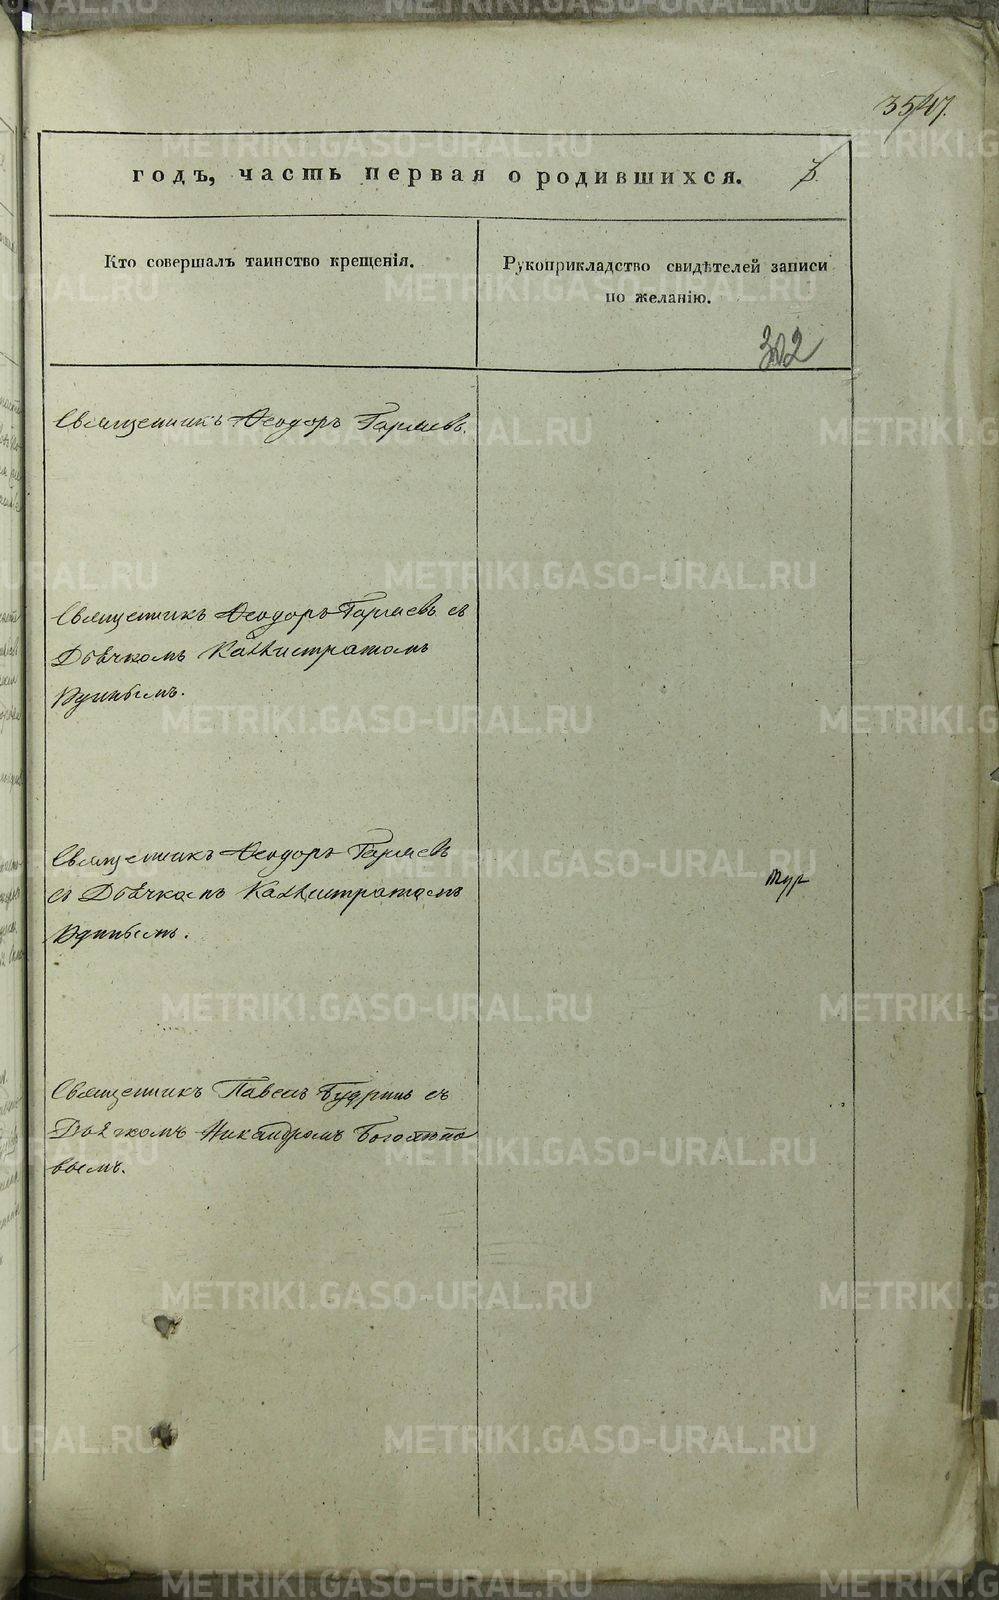 годъ, часть первая о родившихся.
Кто совершалъ таинство крещенія.
Рукоприкладство свидѣтелей записи
по желанію.
302
Священникъ Ѳеодоръ
Священникъ Ѳеодоръ съ
Дьячкомъ Каллистратомъ
Священникъ Ѳеодоръ
съ Дьячкомъ Каллистратомъ
Священникъ Павелъ Будринъ съ
Дьячкомъ Никандромъ Боголѣпо
вымъ.
METRIKI.GASO-URAL.RU